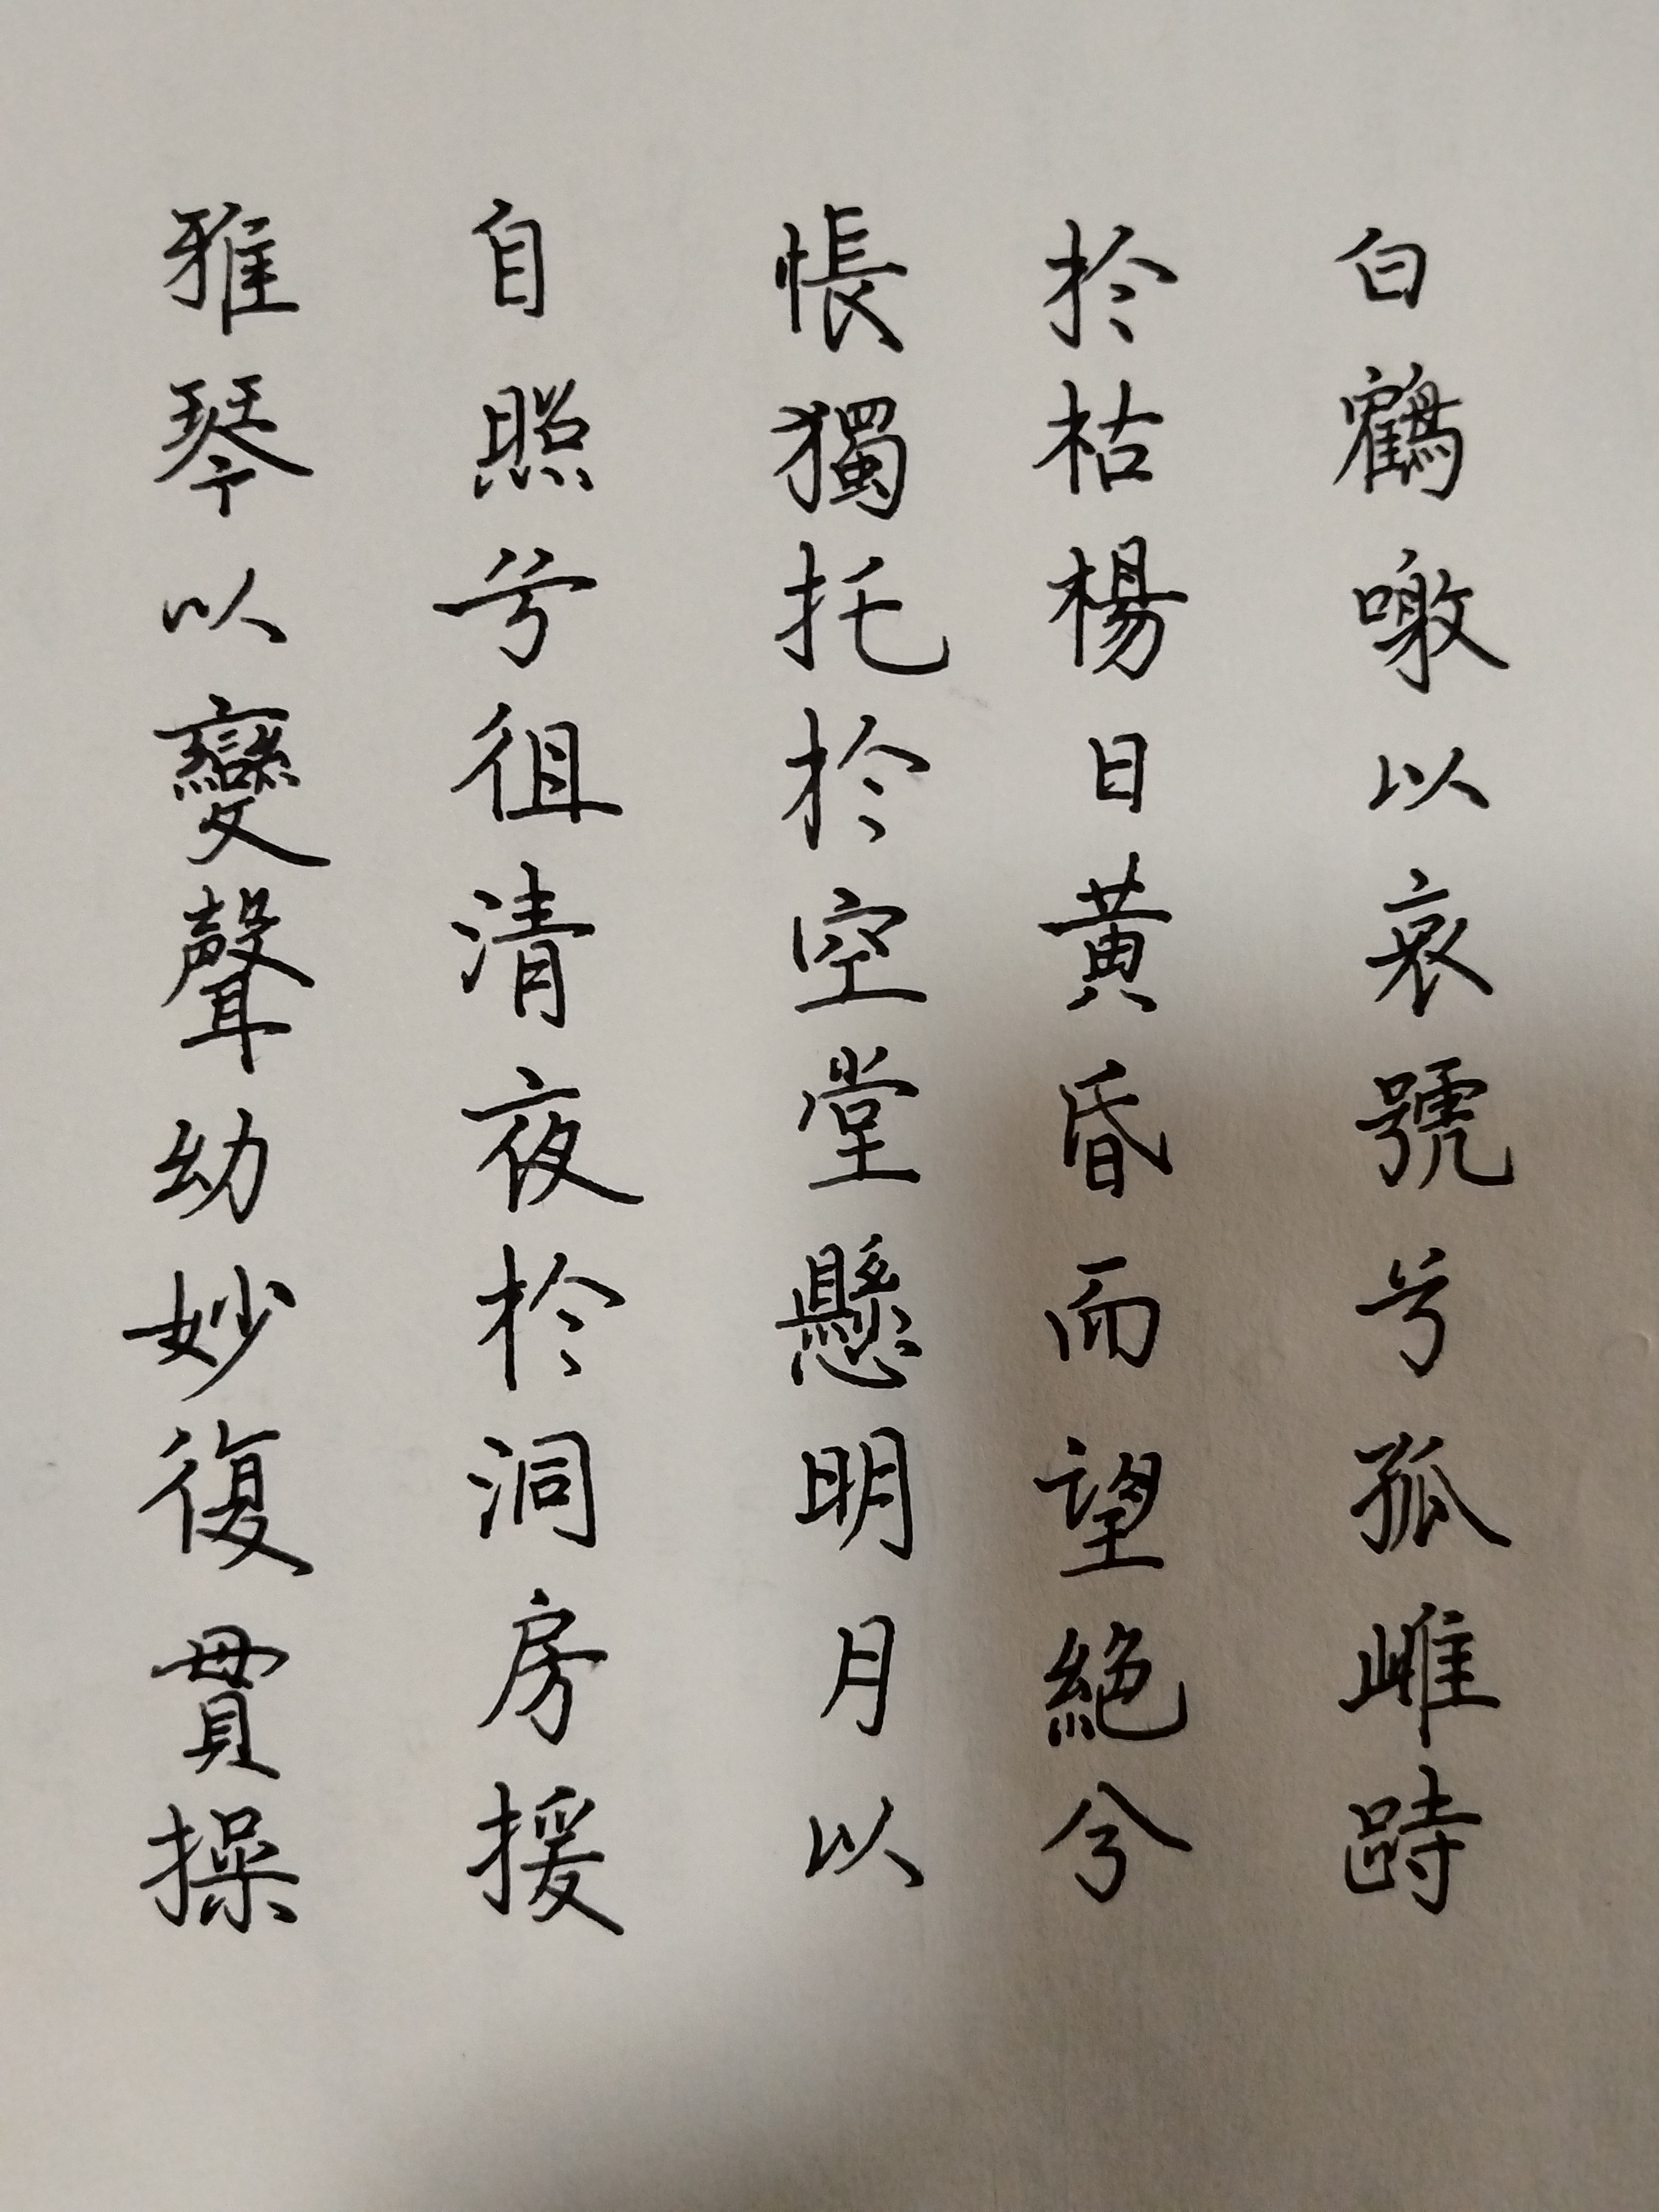 白鶴噭以哀號兮孤雌跱
於枯楊日黄昏而望絕兮
悵獨托於空堂懸明月以
自照兮徂清夜於洞房援
雅琴以變聲幼妙復貫操